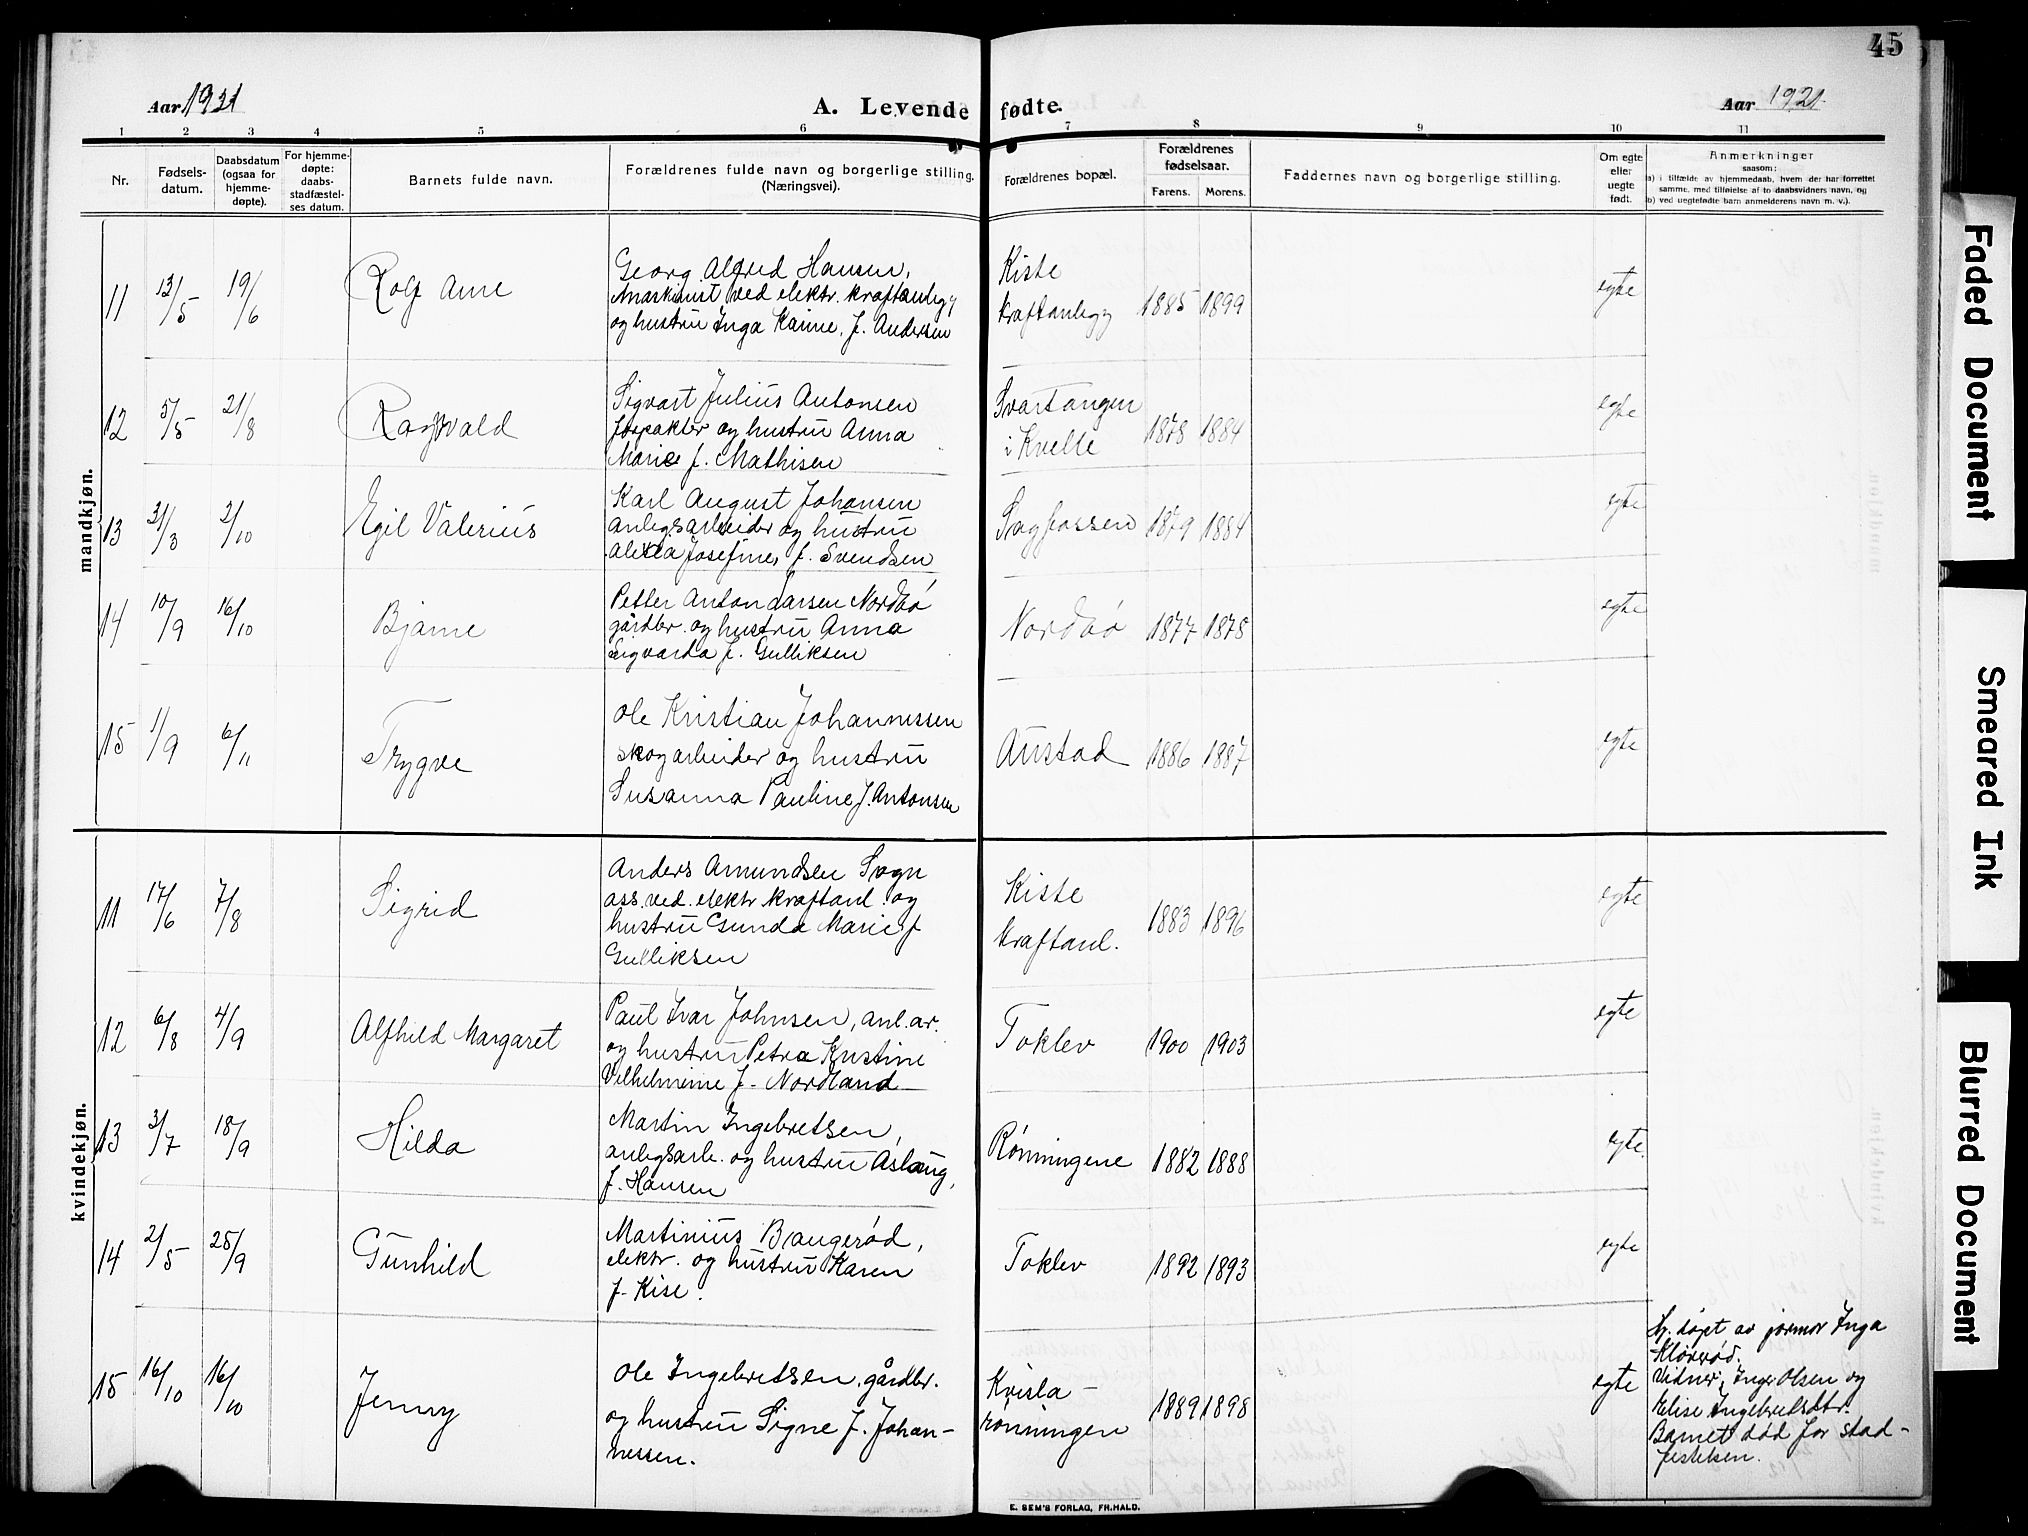 45
Aar 1921
A. Levende fødte.
Aar 1921.
1 2 3 4 5 6 7 8 9 10 11
Nr.
Fødsels-
datum.
Daabsdatum
(ogsaa for
hjemme-
døpte).
For hjemme-
døpte:
daabs-
stadfæstel-
ses datum.
Barnets fulde navn.
Forældrenes fulde navn og borgerlige stilling.
(Næringsvei).
Forældrenes bopæl.
Forældrenes
fødselsaar.
Farens. Morens.
Faddernes navn og borgerlige stilling.
Om egte
eller
uegte
født.
Anmerkninger
saasom:
a) i tilfælde av hjemmedaab, hvem der har forrettet
samme, med tilføielse af to daabsvidners navn, og
b) ved uegtefødte barn anmelderens navn m. v.).
mandkjøn.
11 13/5 19/6 Rolf Arne
Georg Alfred Hansen,
maskinist ved elektr. kraftanlegg
og hustru Inga Karine, f. Andersen
Kiste
kraftanlegg
1885 1899 egte
12 5/5 21/8 Ragnvald
Sigvart Julius Antonsen
forpakter og hustru Anna
Marie f. Mathisen
Svartangen
i Kvelle
1878 1884 egte
13 31/3 2/10 Egil Valerius
Karl August Johansen
anlegsarbeider og hustru
Alexia Josefine, f. Svendsen
Sagfossen
1879 1884 egte
14 10/9 16/10 Bjarne
Petter Anton Larsen Nordbø
gårdbr. og hustru Anna
Sigvarda f. Gulliksen
Nordbø
1877 1878 egte
15 1/9 6/11 Trygve
Ole Kristian Johannessen
skogarbeider og hustru
Susanna Pauline f. Antonsen
Austad
1886 1887 egte
kvindekjøn.
11 17/6 7/8 Sigrid
Anders Amundsen Sogn
ass. ved. elektr. kraftanl. og
hustru Gunda Marie f
Gulliksen
Kiste
kraftanl.
1883 1896 egte
12 6/8 4/9 Alfhild Margaret
Paul Ivar Johnsen, anl. ar.
og hustru Petra Kristine
Vilhelmine f. Nordland
Toklev
1900 1903 egte
13 3/7 18/9 Hilda
Martin Ingebretsen,
anlegsarb. og hustru Aslaug,
f. Hansen
Rønningene
1882 1888 egte.
14 2/5 25/9 Gunhild
Martinius Bangerød,
elektr. og hustru Karen
f. Kise.
Toklev
1892 1893 egte
15 16/10 16/10 Jenny
Ole Ingebretsen, gårdbr.
og hustru Signe f. Johan-
nessen.
Kvisla -
rønningen
1889 1898 egte
Hj. døpt av jormor Inga
Kløverød.
Vidner: Inge Olsen og
Elise Ingebretsdtr.
Barnet død før stad-
festelsen.
E. SEM'S FORLAG, FR.HALD.
Faded Document
Smeared Ink
Blurred Document